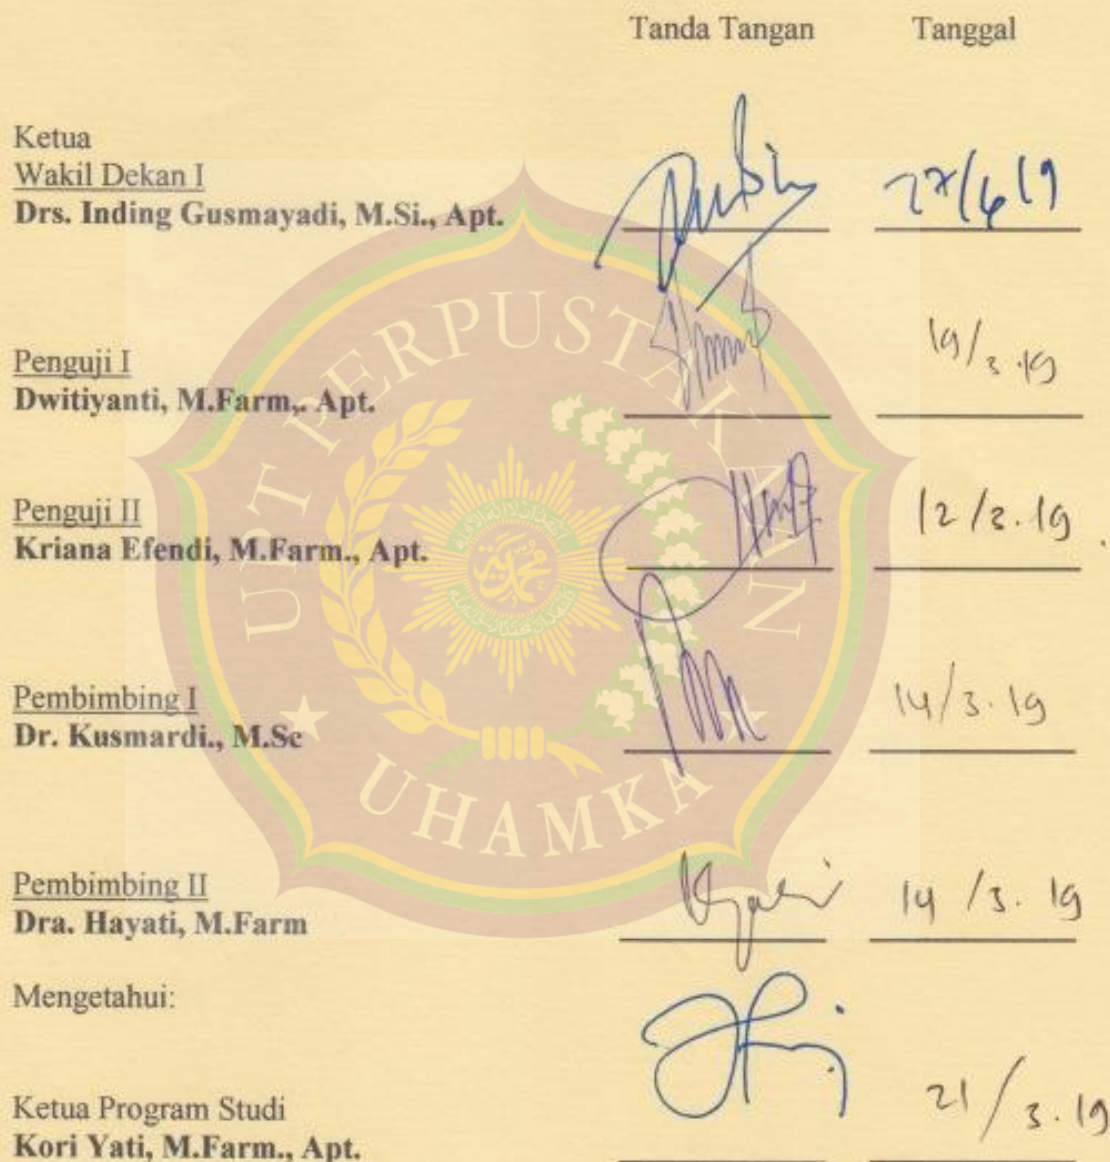 Tanda Tangan Tanggal
Ketua
Wakil Dekan I
Drs. Inding Gusmayadi, M.Si., Apt. 27/4 19
Penguji I 19/3.19
Dwitiyanti, M.Farm,. Apt.
Penguji II 12/3.19
Kriana Efendi, M.Farm., Apt.
Pembimbing I 14/3.19
Dr. Kusmardi., M.Sc
Pembimbing II 14/3.19
Dra. Hayati, M.Farm
Mengetahui:
Ketua Program Studi 21/3.19
Kori Yati, M.Farm., Apt.
UPT PERPUSTAKAAN
UHAMKA